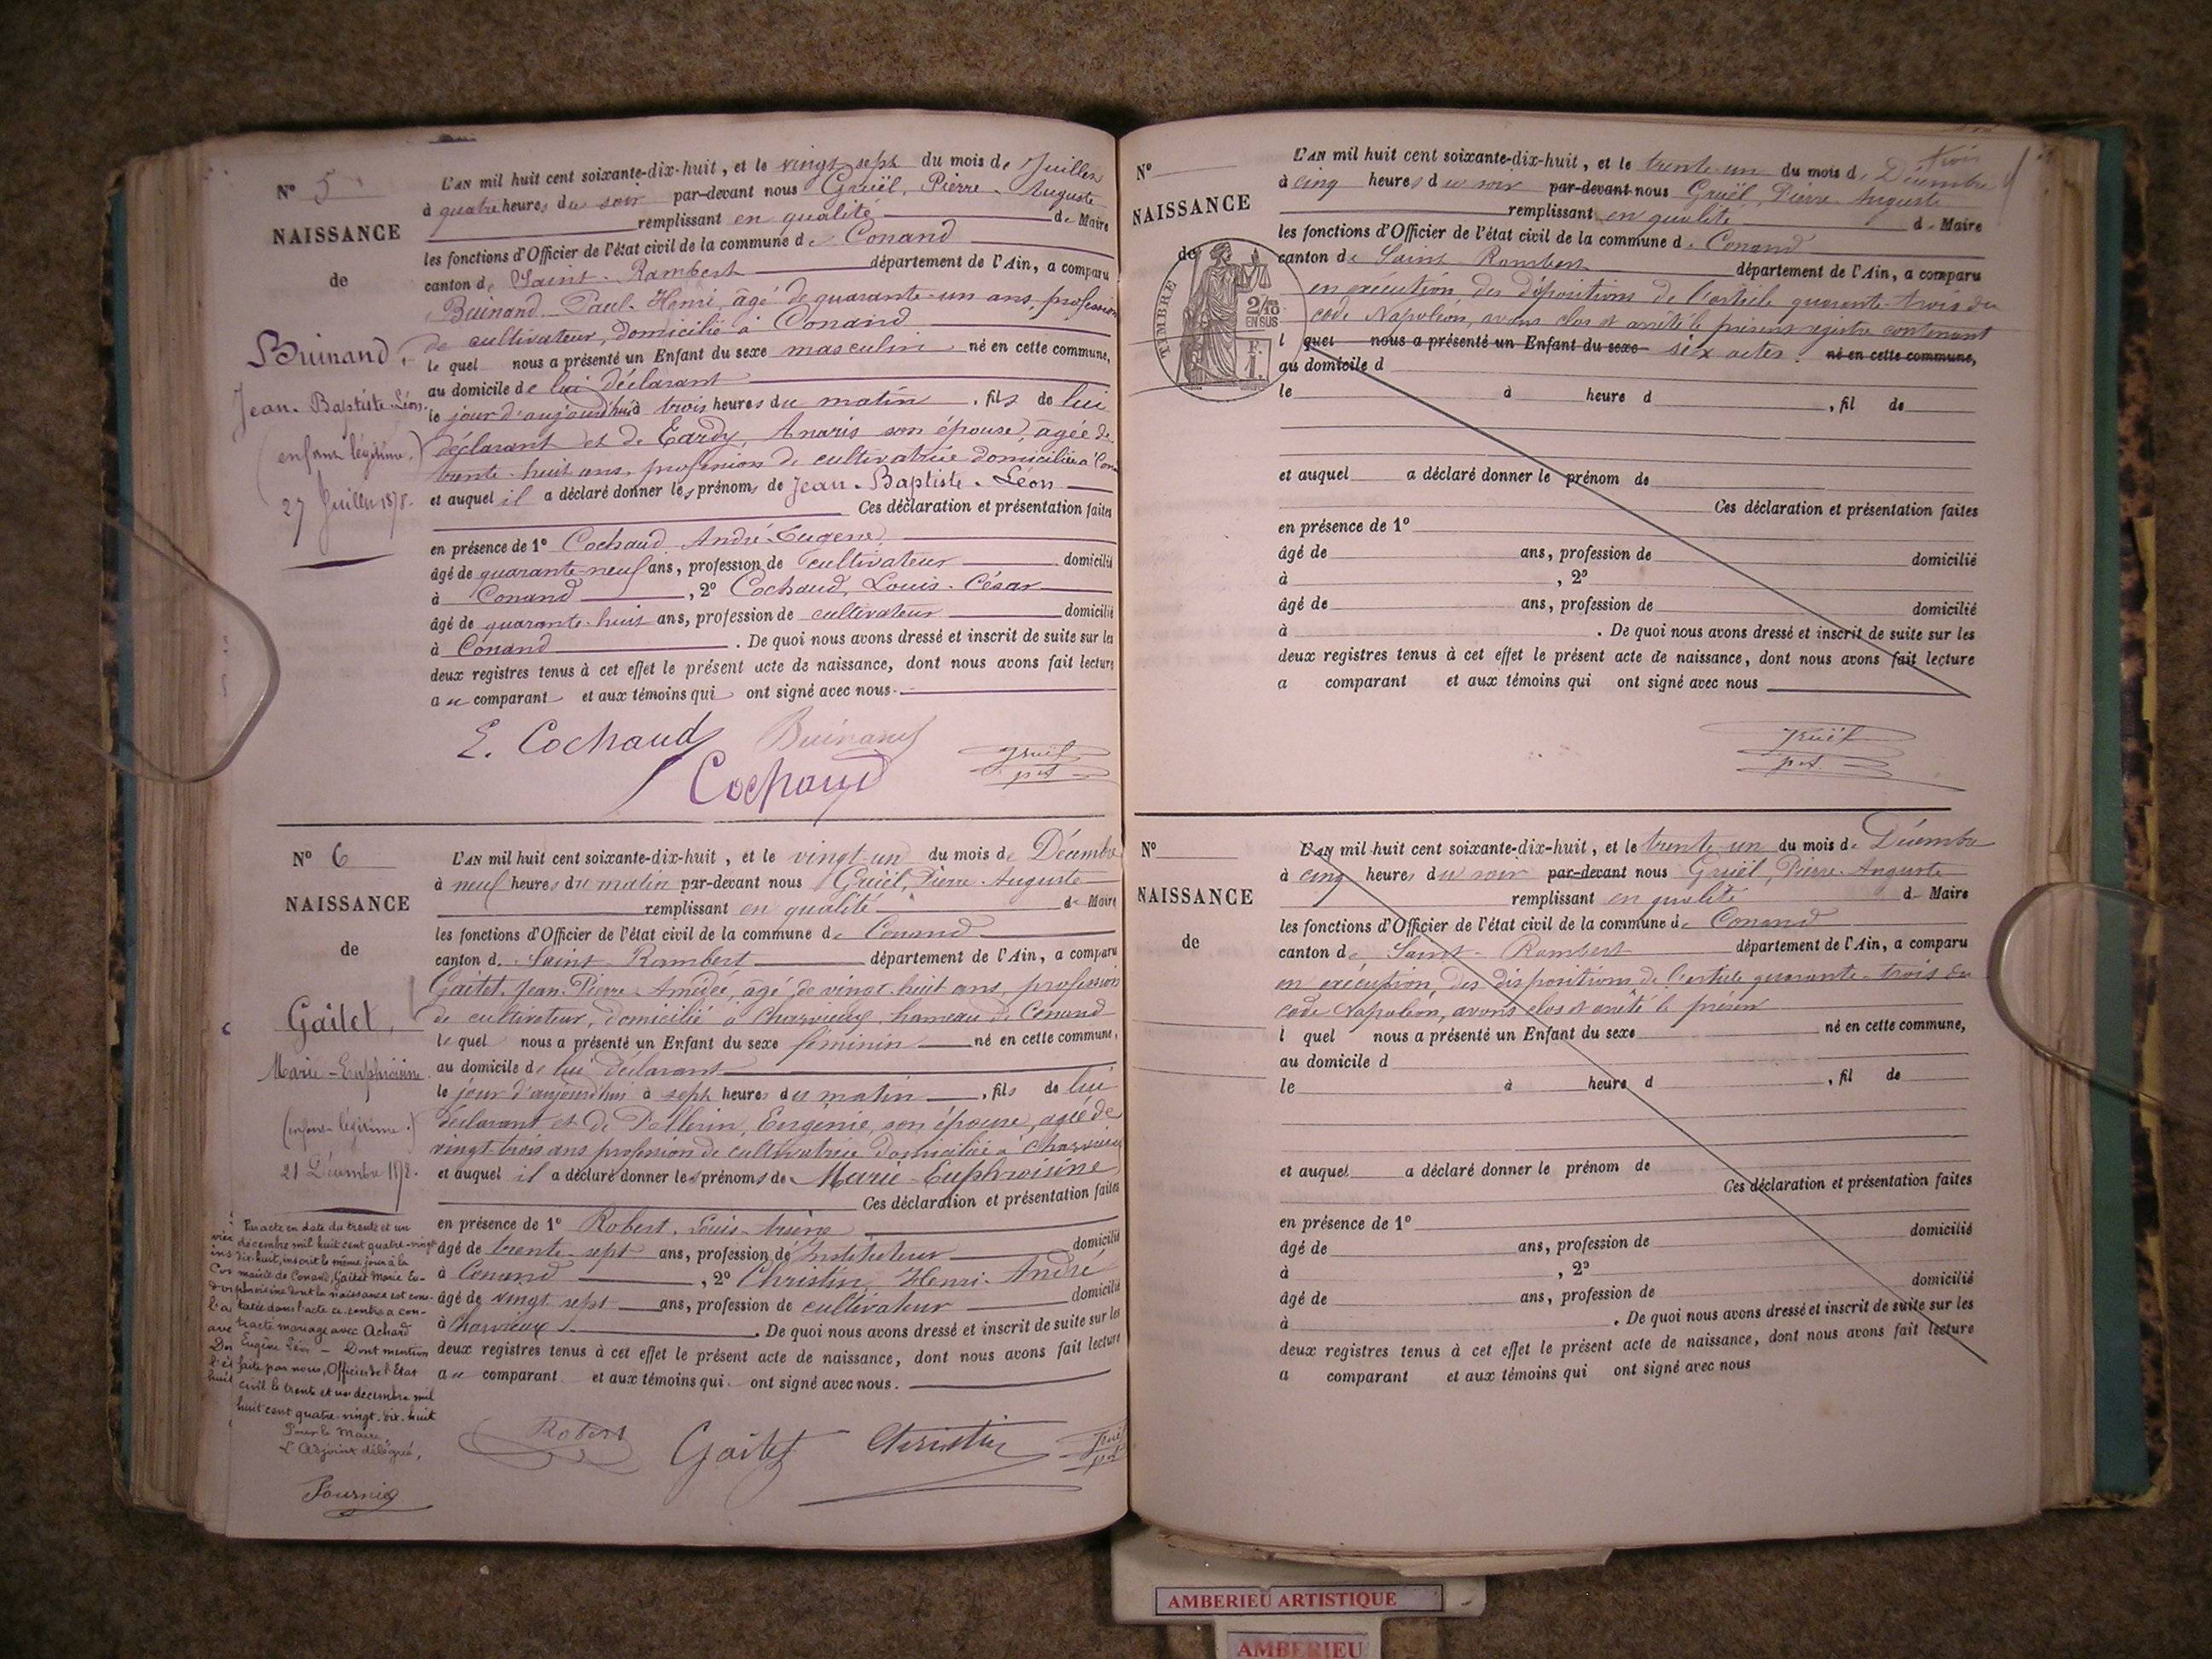 N° 5
NAISSANCE
de
Buinand,
Jean-Baptiste-Léon
(enfant légitime.)
27 Juillet 1878.
L'AN mil huit cent soixante-dix-huit, et le vingt sept du mois de Juillet
à quatre heures du soir par-devant nous Gruël, Pierre-Auguste
remplissant en qualité de Maire
les fonctions d'Officier de l'état civil de la commune de Conand
canton de Saint-Rambert département de l'Ain, a comparu
Buinand Paul-Henri, âgé de quarante-un ans, profession
de cultivateur, domicilié à Conand
lequel nous a présenté un Enfant du sexe masculin né en cette commune,
au domicile de lui déclarant
le jour d'aujourd'hui à trois heures du matin, fils de lui
déclarant et de Tardy, Anaris son épouse, agée de
trente-huit ans, profession de cultivatrice domiciliée à Con
et auquel il a déclaré donner les prénoms de Jean-Baptiste-Léon
Ces déclaration et présentation faites
en présence de 1° Cochaud André-Eugène
âgé de quarante-neuf ans, profession de cultivateur domicilié
à Conand, 2° Cochaud, Louis-César
âgé de quarante-huit ans, profession de cultivateur domicilié
à Conand. De quoi nous avons dressé et inscrit de suite sur les
deux registres tenus à cet effet le présent acte de naissance, dont nous avons fait lecture
au comparant et aux témoins qui ont signé avec nous.
E. Cochaud Buinand
Cochaud Gruël
N° 6
NAISSANCE
de
Gaitet,
Marie-Euphroisine
(enfant légitime.)
21 Décembre 1878.
L'AN mil huit cent soixante-dix-huit, et le vingt-un du mois de Décembre
à neuf heures du matin par-devant nous Gruël, Pierre-Auguste
remplissant en qualité de Maire
les fonctions d'Officier de l'état civil de la commune de Conand
canton de Saint-Rambert département de l'Ain, a comparu
Gaitet, Jean-Pierre-Amédée, âgé de vingt-huit ans, profession
de cultivateur, domicilié à Charvieux, hameau de Conand
lequel nous a présenté un Enfant du sexe féminin né en cette commune,
au domicile de lui déclarant
le jour d'aujourd'hui à sept heures du matin, fils de lui
déclarant et de Pellerin, Eugénie, son épouse, agée de
vingt-trois ans profession de cultivatrice domiciliée à Charvieux
et auquel il a déclaré donner les prénoms de Marie-Euphroisine
Ces déclaration et présentation faites
en présence de 1° Robert, Louis
âgé de trente-sept ans, profession de Instituteur domicilié
à Conand, 2° Christin, Henri-André
âgé de vingt-sept ans, profession de cultivateur domicilié
à Charvieux. De quoi nous avons dressé et inscrit de suite sur les
deux registres tenus à cet effet le présent acte de naissance, dont nous avons fait lecture
au comparant et aux témoins qui ont signé avec nous.
Robert Gaitet Christin Gruël
Par acte en date du trente et un
décembre mil huit cent quatre-vingt
dix-huit, inscrit le même jour à la
mairie de Conand, Gaitet Marie Eu-
phroisine dont la naissance est cons-
tatée dans l'acte ci-contre a con-
tracté mariage avec Achard
Eugène Léon - Dont mention
faite par nous, Officier de l'Etat
civil le trente et un décembre mil
huit cent quatre-vingt-dix-huit
Pour le Maire,
L'Adjoint délégué,
Fournier
N°
NAISSANCE
de
TIMBRE
2/10 EN SUS
F. 1.
L'AN mil huit cent soixante-dix-huit, et le trente-un du mois de Décembre
à cinq heures du soir par-devant nous Gruël, Pierre-Auguste
remplissant en qualité de Maire
les fonctions d'Officier de l'état civil de la commune de Conand
canton de Saint-Rambert département de l'Ain, a comparu
en exécution des dispositions de l'article quarante-trois du
code Napoléon, avons clos et arrêté le présent registre contenant
l quel nous a présenté un Enfant du sexe six actes. né en cette commune,
au domicile d
le à heure d, fil de
et auquel a déclaré donner le prénom de
Ces déclaration et présentation faites
en présence de 1°
âgé de ans, profession de domicilié
à, 2°
âgé de ans, profession de domicilié
à. De quoi nous avons dressé et inscrit de suite sur les
deux registres tenus à cet effet le présent acte de naissance, dont nous avons fait lecture
a comparant et aux témoins qui ont signé avec nous
Gruël
N°
NAISSANCE
de
L'AN mil huit cent soixante-dix-huit, et le trente un du mois de Décembre
à cinq heures du soir par-devant nous Gruël, Pierre-Auguste
remplissant en qualité de Maire
les fonctions d'Officier de l'état civil de la commune de Conand
canton de Saint-Rambert département de l'Ain, a comparu
en exécution des dispositions de l'article quarante-trois du
code Napoléon, avons clos et arrêté le présen
l quel nous a présenté un Enfant du sexe né en cette commune,
au domicile d
le à heure d, fil de
et auquel a déclaré donner le prénom de
Ces déclaration et présentation faites
en présence de 1°
âgé de ans, profession de domicilié
à, 2°
âgé de ans, profession de domicilié
à. De quoi nous avons dressé et inscrit de suite sur les
deux registres tenus à cet effet le présent acte de naissance, dont nous avons fait lecture
a comparant et aux témoins qui ont signé avec nous
AMBERIEU ARTISTIQUE
AMBERIEU